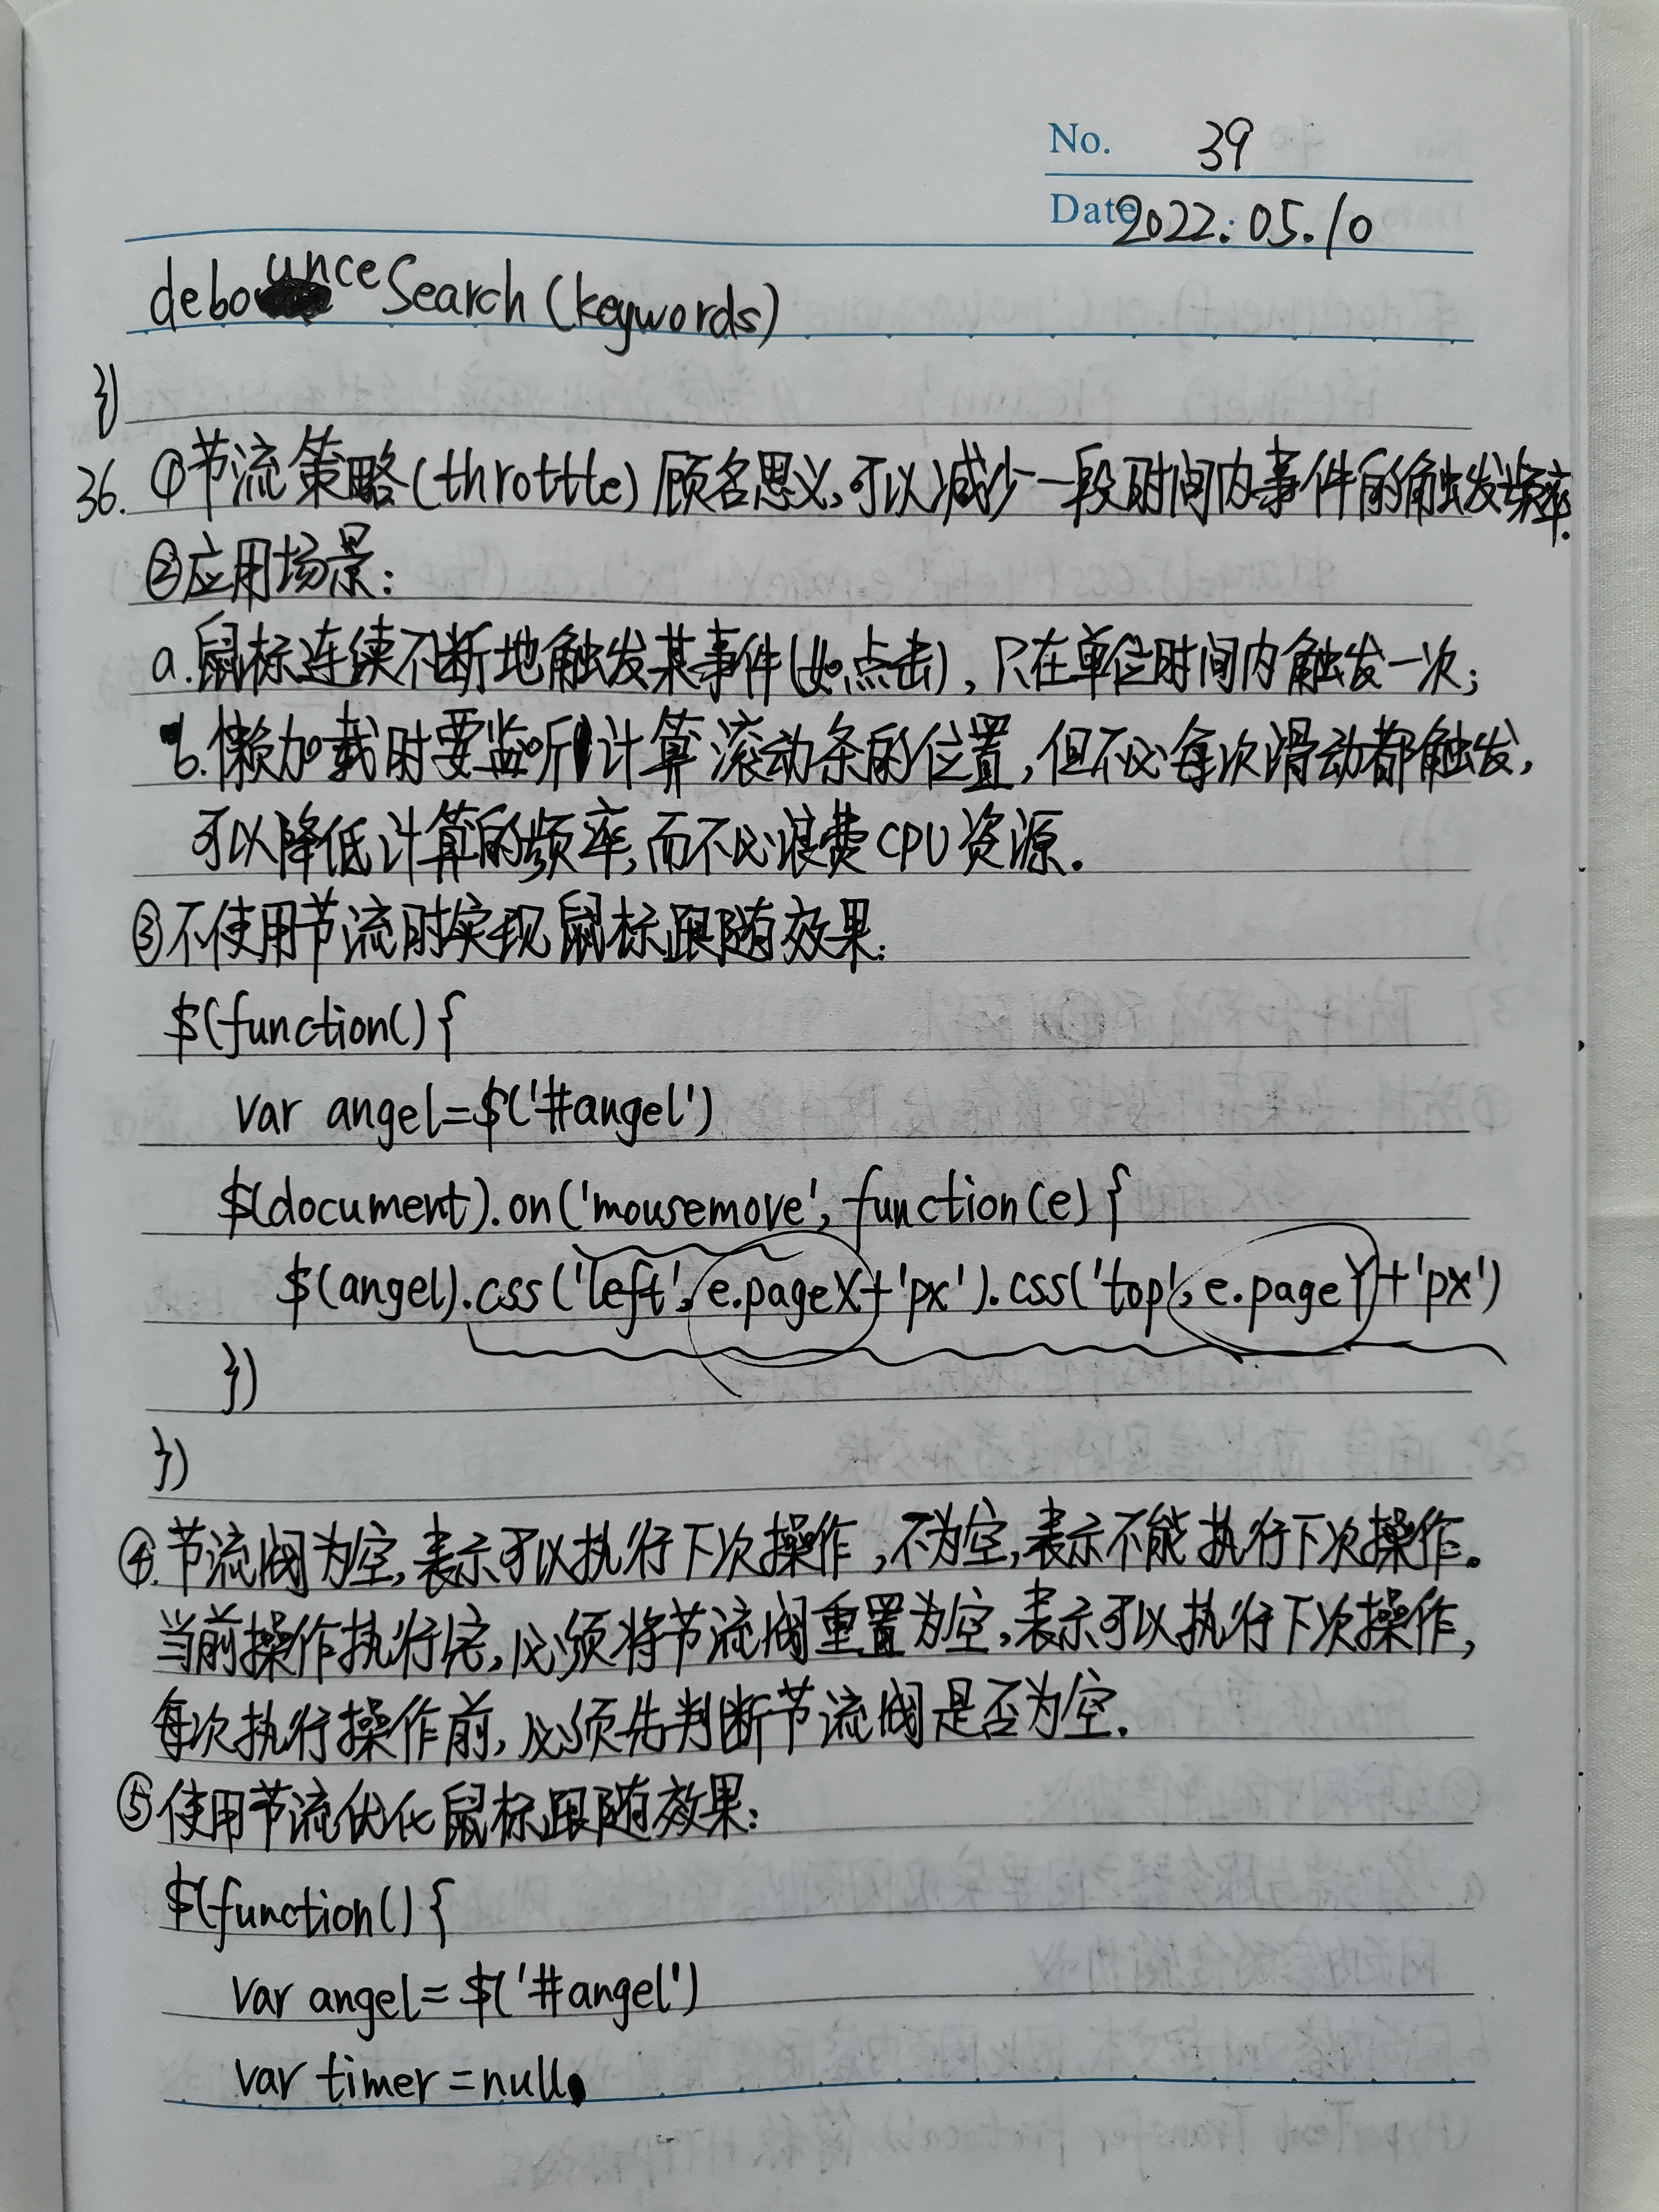 No. 39
Date 2022.05.10
debounceSearch(keywords)
})
36. ①节流策略(throttle)顾名思义,可以减少一段时间内事件的触发频率.
②应用场景:
a.鼠标连续不断地触发某事件(如点击),只在单位时间内触发一次;
b.懒加载时要监听计算滚动条的位置,但不必每次滑动都触发,
可以降低计算的频率,而不必浪费CPU资源.
③不使用节流时实现鼠标跟随效果:
$(function(){
var angel=$('#angel')
$(document).on('mousemove', function(e){
$(angel).css('left', e.pageX+'px').css('top', e.pageY+'px')
})
})
④.节流阀为空,表示可以执行下次操作,不为空,表示不能执行下次操作。
当前操作执行完,必须将节流阀重置为空,表示可以执行下次操作,
每次执行操作前,必须先判断节流阀是否为空.
⑤使用节流优化鼠标跟随效果:
$(function(){
var angel=$('#angel')
var timer=null